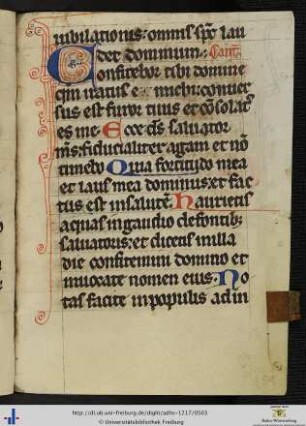 iubilationis: omnis sps lau
det dominum: Cant.
Confitebor tibi domine
qm iratus es michi: conuer
sus est furor tuus et cosolat'
es me. Ecce ds saluator
ms: fiducialiter agam et no
timebo Quia fortitudo mea
et laus mea dominus: et fac
tus est in salute. Haurietis
aquas in gaudio de fontib;
saluatoris: et dicetis in illa
die confitemini domino et
inuocate nomen eius. No
tas facite in populis adin
http://dl.ub.uni-freiburg.de/diglit/adhs-1217/0503
© Universitätsbibliothek Freiburg
Baden-Württemberg